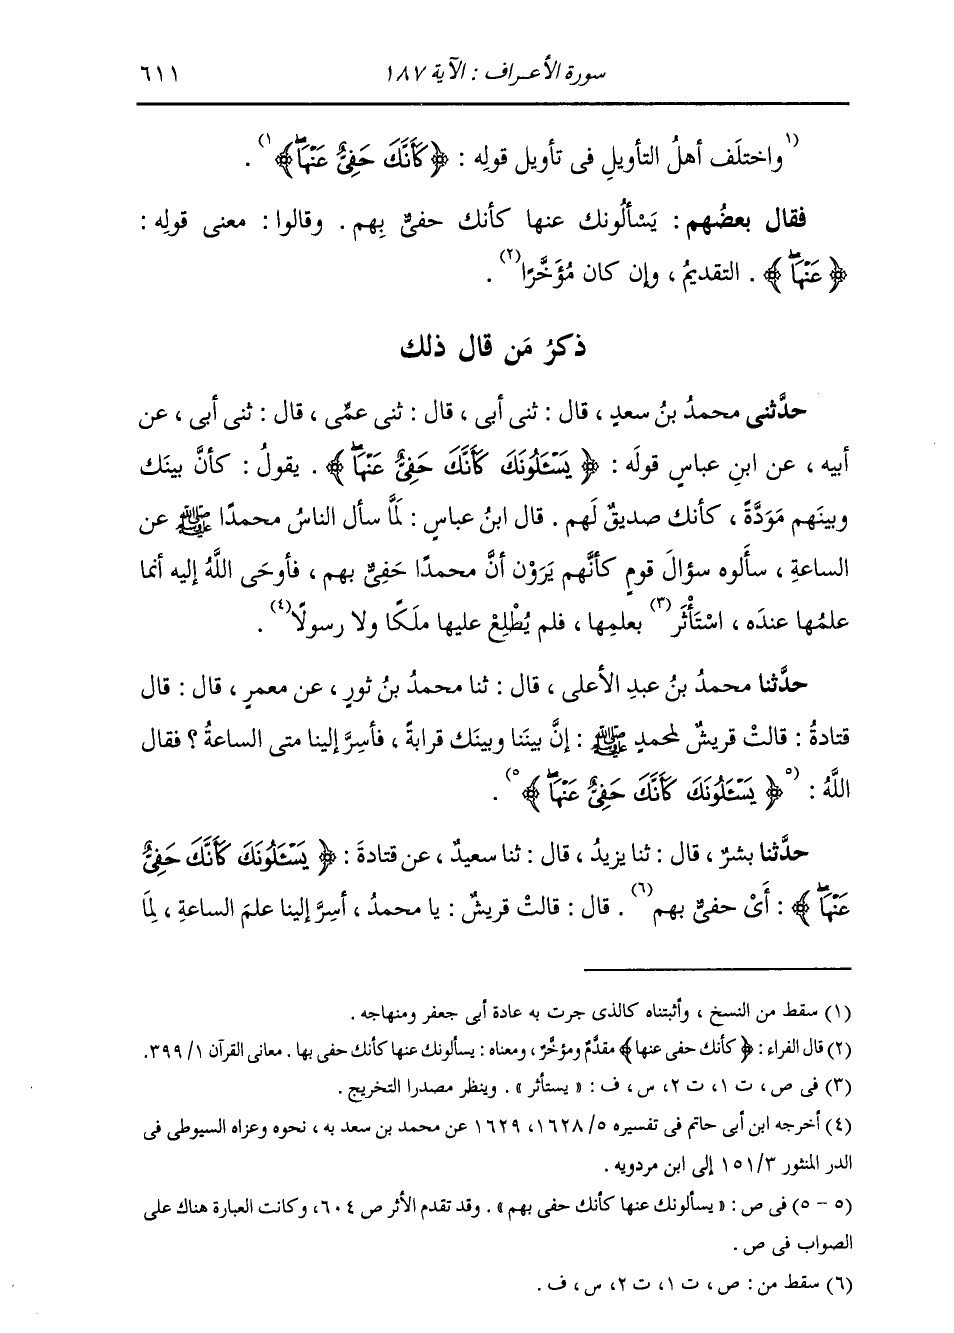 سورة الأعراف : الآية ١٨٧
٦١١
(١) واختلَف أهلُ التأويلِ فى تأويل قولِه : ﴿ كَأَنَّكَ حَفِىٌّ عَنْهَاۖ ﴾ (١) .
فقال بعضُهم : يَسْألُونك عنها كأنك حفىٌّ بِهم . وقالوا : معنى قولِه :
﴿ عَنْهَاۖ ﴾ . التقديمُ ، وإن كان مُؤَخَّرًا (٢) .
ذكرُ مَن قال ذلك
حدَّثنى محمدُ بنُ سعدٍ ، قال : ثنى أبى ، قال : ثنى عمِّى ، قال : ثنى أبى ، عن
أبيه ، عن ابنِ عباسٍ قولَه : ﴿ يَسْـَٔلُونَكَ كَأَنَّكَ حَفِىٌّ عَنْهَاۖ ﴾ . يقولُ : كأنَّ بينَك
وبينَهم مَوَدَّةً ، كأنك صديقٌ لَهم . قال ابنُ عباسٍ : لَمَّا سأل الناسُ محمدًا ﷺ عن
الساعةِ ، سأَلوه سؤالَ قومٍ كأنَّهم يَرَوْن أنَّ محمدًا حَفِىٌّ بهم ، فأوحَى اللَّهُ إليه أنما
علمُها عندَه ، اسْتَأْثَر (٣) بعلمِها ، فلم يُطْلِعْ عليها ملَكًا ولا رسولًا (٤) .
حدَّثنا محمدُ بنُ عبدِ الأعلى ، قال : ثنا محمدُ بنُ ثورٍ ، عن معمرٍ ، قال : قال
قتادةُ : قالتْ قريشٌ لمحمدٍ ﷺ : إنَّ بينَنا وبينَك قرابةً ، فأسِرَّ إلينا متى الساعةُ ؟ فقال
اللَّهُ : (٥) ﴿ يَسْـَٔلُونَكَ كَأَنَّكَ حَفِىٌّ عَنْهَاۖ ﴾ (٥) .
حدَّثنا بشرٌ ، قال : ثنا يزيدُ ، قال : ثنا سعيدٌ ، عن قتادةَ : ﴿ يَسْـَٔلُونَكَ كَأَنَّكَ حَفِىٌّ
عَنْهَاۖ ﴾ : أَىْ حفىٌّ بهم (٦) . قال : قالتْ قريشٌ : يا محمدُ ، أسِرَّ إلينا علمَ الساعةِ ، لِمَا
(١) سقط من النسخ ، وأثبتناه كالذى جرت به عادة أبى جعفر ومنهاجه .
(٢) قال الفراء : ﴿ كأنك حفى عنها ﴾ مقدَّمٌ ومؤخَّرٌ ، ومعناه : يسألونك عنها كأنك حفى بها . معانى القرآن ١/ ٣٩٩.
(٣) فى ص ، ت ١، ت ٢، س ، ف : « يستأثر » . وينظر مصدرا التخريج .
(٤) أخرجه ابن أبى حاتم فى تفسيره ٥/ ١٦٢٨، ١٦٢٩ عن محمد بن سعد به ، نحوه وعزاه السيوطى فى
الدر المنثور ١٥١/٣ إلى ابن مردويه .
(٥ - ٥) فى ص : « يسألونك عنها كأنك حفى بهم » . وقد تقدم الأثر ص ٦٠٤، وكانت العبارة هناك على
الصواب فى ص .
(٦) سقط من : ص ، ت ١، ت ٢، س ، ف .